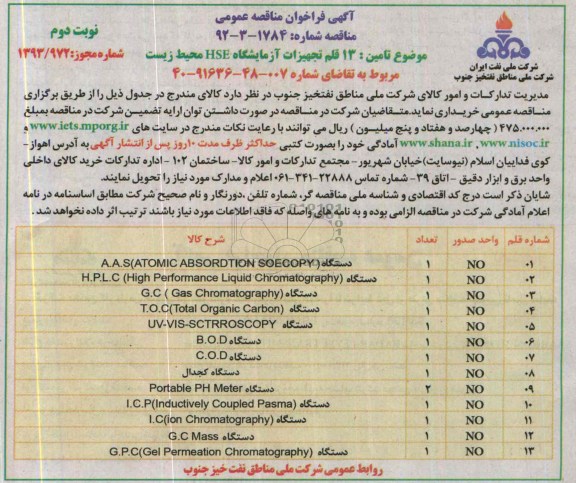 آگهی فراخوان مناقصه عمومی
مناقصه شماره: ۱۷۸۴-۳-۹۲
نوبت دوم
شماره مجوز: ۱۳۹۳/۹۷۲
موضوع تامین: ۱۳ قلم تجهیزات آزمایشگاه HSE محیط زیست
مربوط به تقاضای شماره ۰۰۷-۴۸-۹۱۶۳۶-۴۰
شرکت ملی نفت ایران
شرکت ملی مناطق نفتخیز جنوب
مدیریت تدارکات و امور کالای شرکت ملی مناطق نفتخیز جنوب در نظر دارد کالای مندرج در جدول ذیل را از طریق برگزاری
مناقصه عمومی خریداری نماید.متقاضیان شرکت در مناقصه در صورت داشتن توان ارایه تضمین شرکت در مناقصه بمبلغ
۴۷۵.۰۰۰.۰۰۰ (چهارصد و هفتاد و پنج میلیون) ریال می توانند با رعایت نکات مندرج در سایت های www.iets.mporg.ir و
www.shana.ir , www.nisoc.ir آمادگی خود را بصورت کتبی حداکثر ظرف مدت ۱۰روز پس از انتشار آگهی به آدرس اهواز -
کوی فداییان اسلام (نیوسایت)خیابان شهریور- مجتمع تدارکات و امور کالا- ساختمان ۱۰۲- اداره تدارکات خرید کالای داخلی
واحد برق و ابزار دقیق -اتاق ۳۹- شماره تماس ۲۲۸۸۸-۳۴۱-۰۶۱ اعلام و مدارک مورد نیاز را تحویل نمایند.
شایان ذکر است درج کد اقتصادی و شناسه ملی مناقصه گر، شماره تلفن، دورنگار و نام صحیح شرکت مطابق اساسنامه در نامه
اعلام آمادگی شرکت در مناقصه الزامی بوده و به نامه های واصله که فاقد اطلاعات مورد نیاز باشند ترتیب اثر داده نخواهد شد.
شماره قلم واحد صدور تعداد شرح کالا
۰۱ NO ۱ دستگاه A.A.S(ATOMIC ABSORDTION SOECOPY)
۰۲ NO ۱ دستگاه H.P.L.C (High Performance Liquid Chromatography)
۰۳ NO ۱ دستگاه G.C ( Gas Chromatography)
۰۴ NO ۱ دستگاه T.O.C(Total Organic Carbon)
۰۵ NO ۱ دستگاه UV-VIS-SCTRROSCOPY
۰۶ NO ۱ دستگاه B.O.D
۰۷ NO ۱ دستگاه C.O.D
۰۸ NO ۱ دستگاه کجدال
۰۹ NO ۲ دستگاه Portable PH Meter
۱۰ NO ۱ دستگاه I.C.P(Inductively Coupled Pasma)
۱۱ NO ۱ دستگاه I.C(ion Chromatography)
۱۲ NO ۱ دستگاه G.C Mass
۱۳ NO ۱ دستگاه G.P.C(Gel Permeation Chromatography)
روابط عمومی شرکت ملی مناطق نفت خیز جنوب